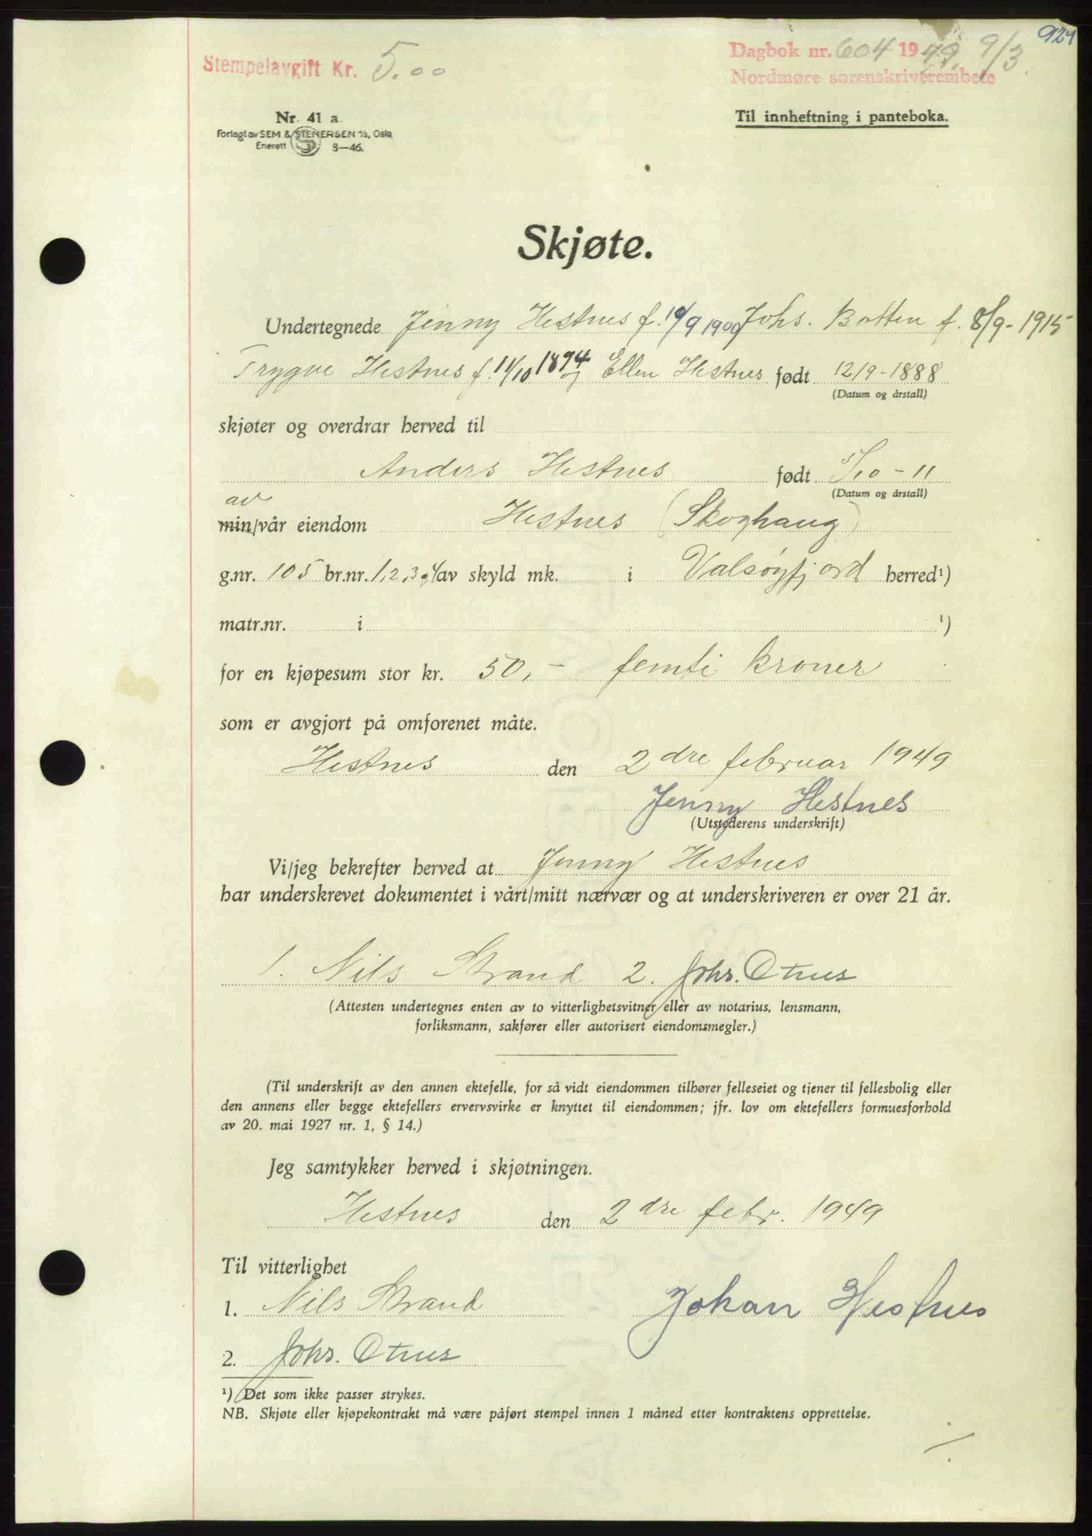 924
Stempelavgift Kr. 5.00
Dagbok nr. 604 1949. 9/3
Nordmøre sorenskriverembete
Nr. 41 a
Forlagt av SEM & STENERSEN A/S, Oslo
Enerett 8—46.
Til innheftning i panteboka.
Skjøte.
Undertegnede Jenny Hestnes f. 19/9 1900 Johs. Botten f. 8/9-1915
Trygve Hestnes f. 11/10 1894 og Ellen Hestnes født 12/9-1888
(Datum og årstall)
skjøter og overdrar herved til
Anders Hestnes født 5/10-11
(Datum og årstall)
av
min/vår eiendom Hestnes (Skoghaug)
g.nr. 105 br.nr. 1,2,3,4 av skyld mk. i Valsøyfjord herred¹)
matr.nr. i ¹)
for en kjøpesum stor kr. 50,- femti kroner
som er avgjort på omforenet måte.
Hestnes den 2dre februar 1949
Jenny Hestnes
(Utstederens underskrift)
Vi/jeg bekrefter herved at Jenny Hestnes
har underskrevet dokumentet i vårt/mitt nærvær og at underskriveren er over 21 år.
1. Nils Strand 2. Johs. Otnes
(Attesten undertegnes enten av to vitterlighetsvitner eller av notarius, lensmann,
forliksmann, sakfører eller autorisert eiendomsmegler.)
(Til underskrift av den annen ektefelle, for så vidt eiendommen tilhører felleseiet og tjener til fellesbolig eller
den annens eller begge ektefellers ervervsvirke er knyttet til eiendommen; jfr. lov om ektefellers formuesforhold
av 20. mai 1927 nr. 1, § 14.)
Jeg samtykker herved i skjøtningen.
Hestnes den 2dre febr. 1949
Til vitterlighet
1. Nils Strand Johan Hestnes
2. Johs. Otnes
¹) Det som ikke passer strykes.
NB. Skjøte eller kjøpekontrakt må være påført stempel innen 1 måned etter kontraktens opprettelse.